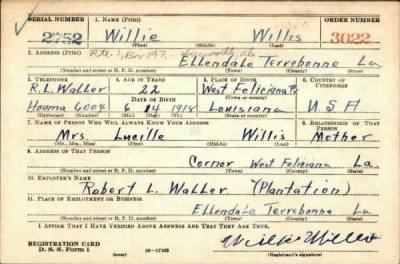 SERIAL NUMBER 1. NAME (Print) ORDER NUMBER
2252 Willie Willis 3022
(First) (Middle) (Last)
2. ADDRESS (Print) Rte. 1, Box 147,
Ellendale Terrebonne La
(Number and street or R. F. D. number) (Town) (County) (State)
3. TELEPHONE 4. AGE IN YEARS 5. PLACE OF BIRTH 6. COUNTRY OF CITIZENSHIP
R.L. Walker 22 West Feliciana Ps
DATE OF BIRTH (Town or county)
Houma 6004 6 14 1918 Louisiana U.S.A
(Mo.) (Day) (Yr.) (State or country)
7. NAME OF PERSON WHO WILL ALWAYS KNOW YOUR ADDRESS 8. RELATIONSHIP OF THAT PERSON
Mrs. Lucille Willis Mother
(Mr., Mrs., Miss) (First) (Middle) (Last)
9. ADDRESS OF THAT PERSON
Cornor West Feliciana La
(Number and street or R. F. D. number) (Town) (County) (State)
10. EMPLOYER'S NAME
Robert L. Walker (Plantation)
11. PLACE OF EMPLOYMENT OR BUSINESS
Ellendale Terrebonne La
(Number and street or R. F. D. number) (Town) (County) (State)
I AFFIRM THAT I HAVE VERIFIED ABOVE ANSWERS AND THAT THEY ARE TRUE.
REGISTRATION CARD
D. S. S. Form 1 (over) 16—17105 Willie Willis
(Registrant's signature)